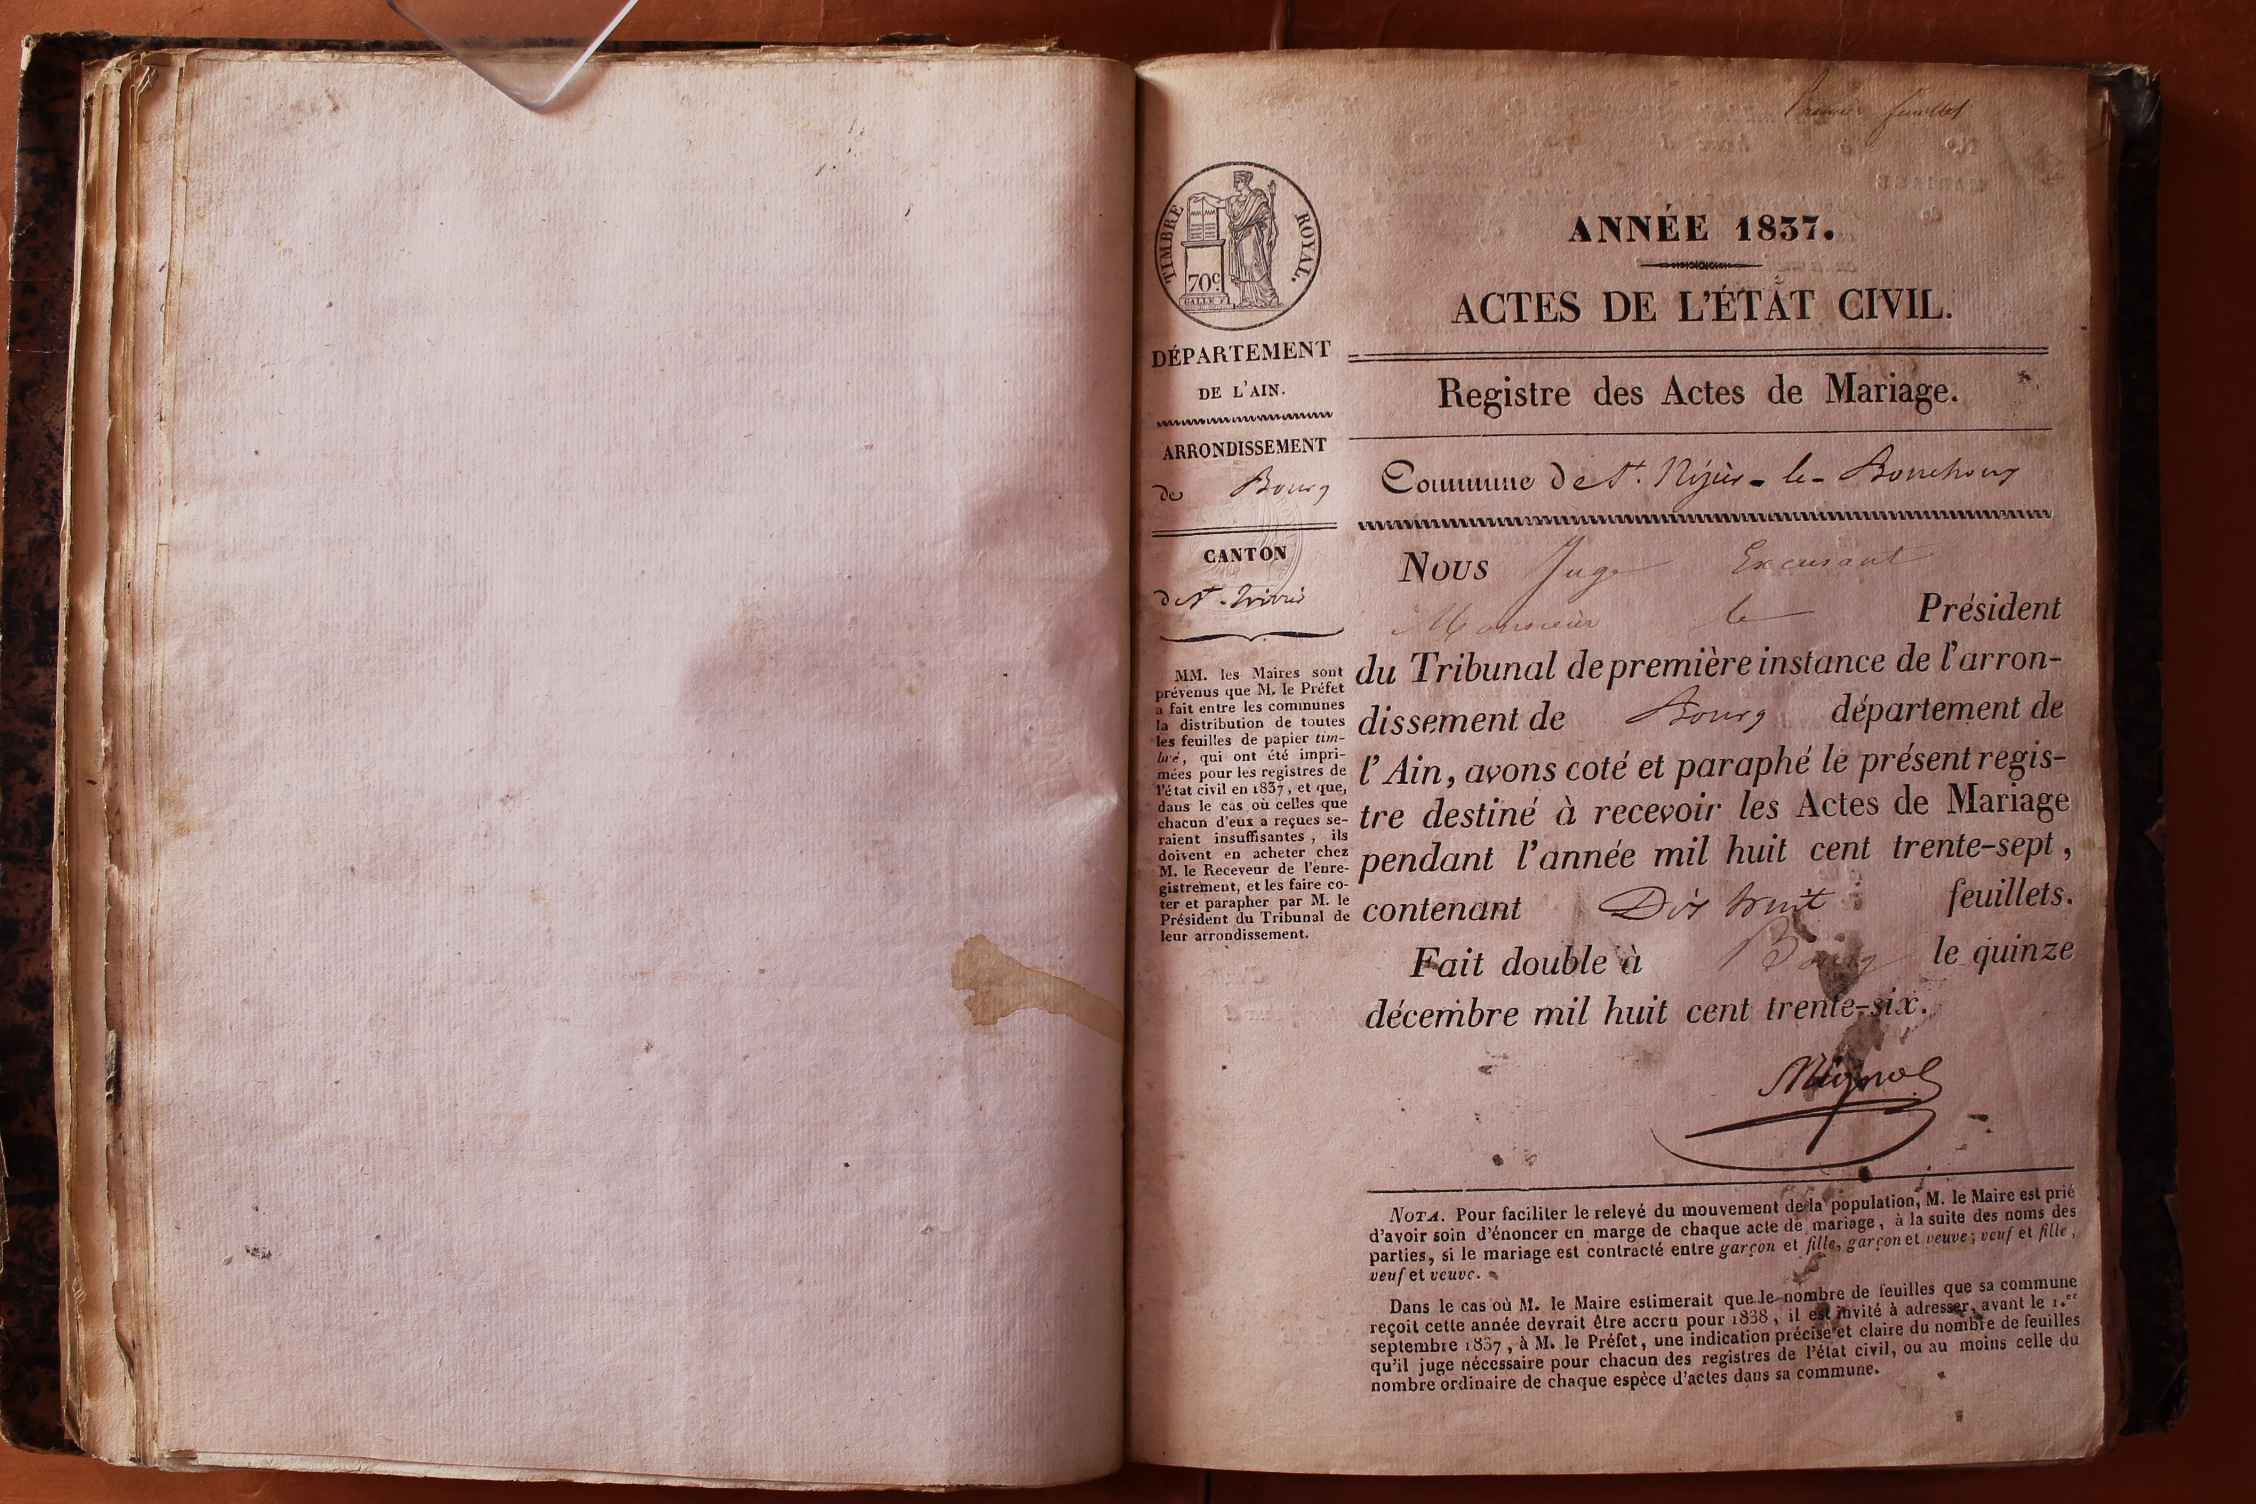 Premier feuillet
TIMBRE ROYAL.
70c
ANNÉE 1837.
ACTES DE L'ÉTAT CIVIL.
DÉPARTEMENT
DE L'AIN.
Registre des Actes de Mariage.
ARRONDISSEMENT
de Bourg
Commune de St. Nizier-le-Bouchoux
CANTON
de St. Trivier
MM. les Maires sont
prévenus que M. le Préfet
a fait entre les communes
la distribution de toutes
les feuilles de papier tim-
bré, qui ont été impri-
mées pour les registres de
l'état civil en 1837, et que,
dans le cas où celles que
chacun d'eux a reçues se-
raient insuffisantes, ils
doivent en acheter chez
M. le Receveur de l'enre-
gistrement, et les faire co-
ter et parapher par M. le
Président du Tribunal de
leur arrondissement.
Nous Juge Excusant
Monsieur le Président
du Tribunal de première instance de l'arron-
dissement de Bourg département de
l'Ain, avons coté et paraphé le présent regis-
tre destiné à recevoir les Actes de Mariage
pendant l'année mil huit cent trente-sept,
contenant Dix huit feuillets.
Fait double à Bourg le quinze
décembre mil huit cent trente-six.
NOTA. Pour faciliter le relevé du mouvement de la population, M. le Maire est prié
d'avoir soin d'énoncer en marge de chaque acte de mariage, à la suite des noms des
parties, si le mariage est contracté entre garçon et fille, garçon et veuve; veuf et fille,
veuf et veuve.
Dans le cas où M. le Maire estimerait que le nombre de feuilles que sa commune
reçoit cette année devrait être accru pour 1838, il est invité à adresser, avant le 1.er
septembre 1837, à M. le Préfet, une indication précise et claire du nombre de feuilles
qu'il juge nécessaire pour chacun des registres de l'état civil, ou au moins celle du
nombre ordinaire de chaque espèce d'actes dans sa commune.